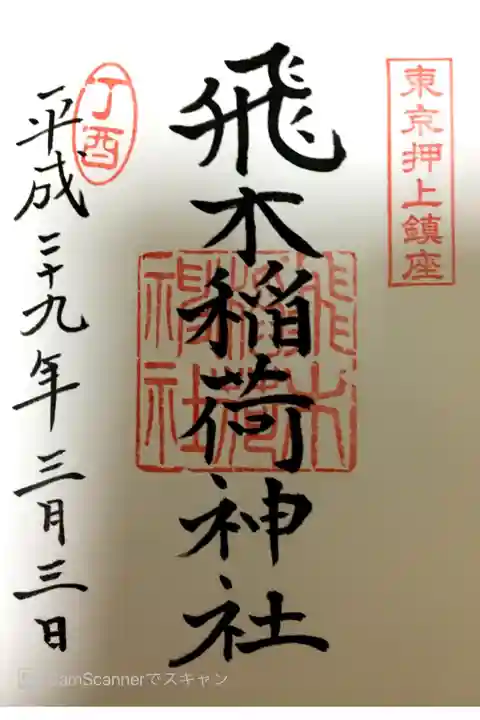 東京押上鎮座
飛木稲荷神社
飛木稲荷神社
丁酉
平成二十九年三月三日
CamScannerでスキャン